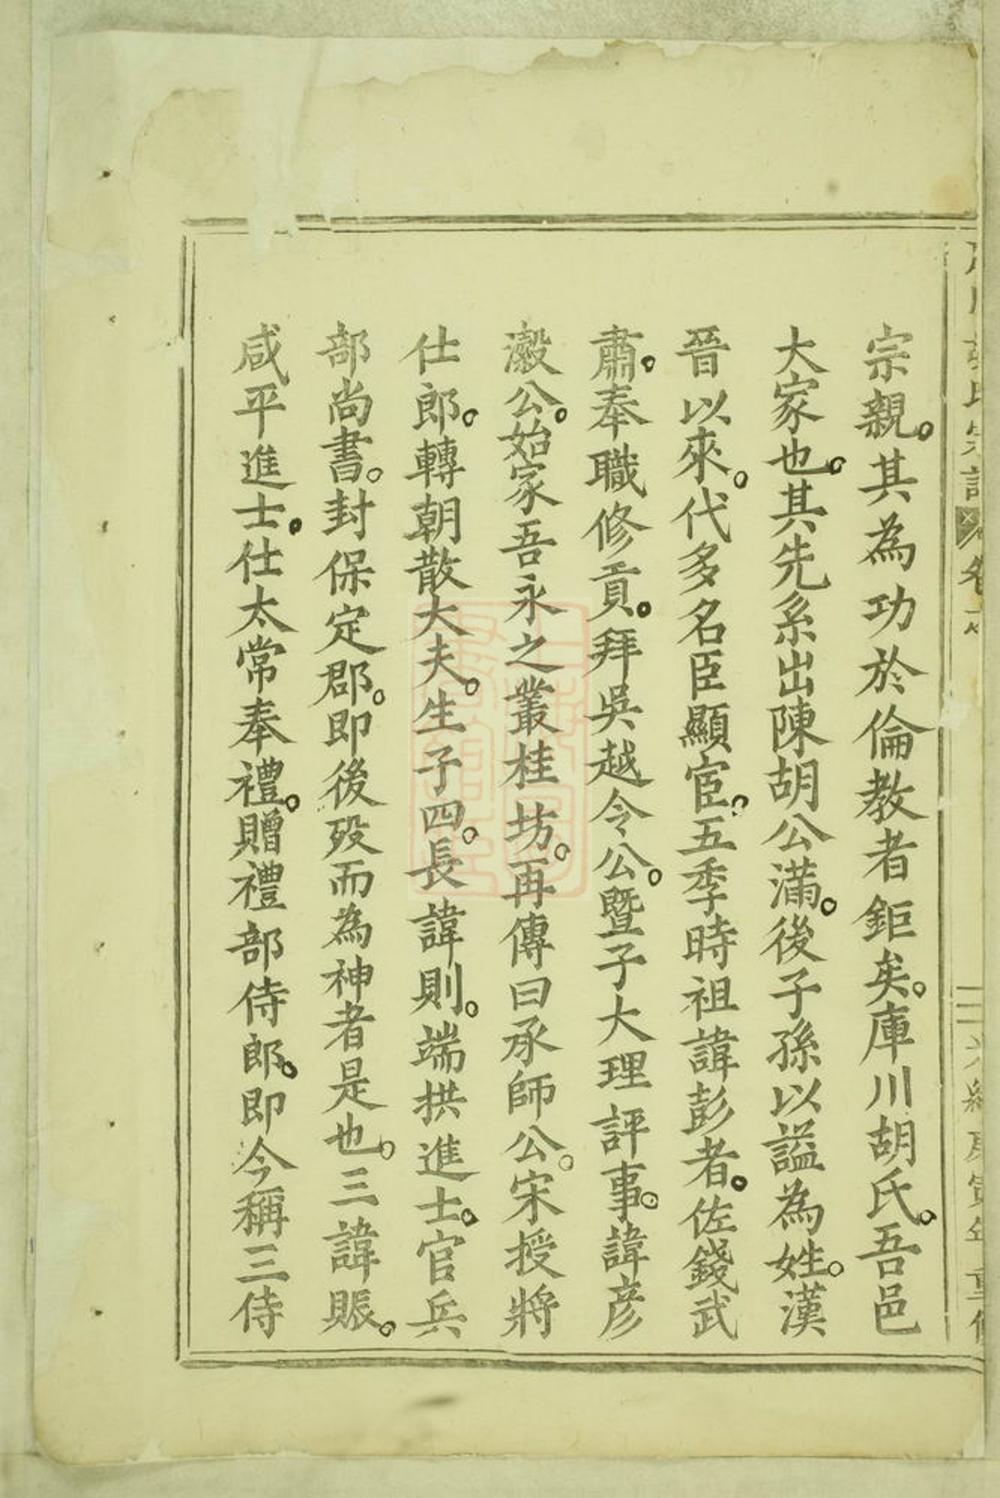 宗親。其為功於倫教者鉅矣。庫川胡氏。吾邑
大家也。其先系出陳胡公滿。後子孫以謚為姓。漢
晉以來。代多名臣顯宦。五季時祖諱彭者。佐錢武
肅。奉職修貢。拜吳越令公。暨子大理評事。諱彥
瀫公。始家吾永之叢桂坊。再傳曰承師公。宋授將
仕郎。轉朝散大夫。生子四。長諱則。端拱進士。官兵
部尚書。封保定郡。即後歿而為神者是也。三諱賑。
咸平進士。仕太常奉禮。贈禮部侍郎。即今稱三侍
川胡氏宗譜 卷
二 光緒庚寅年重修